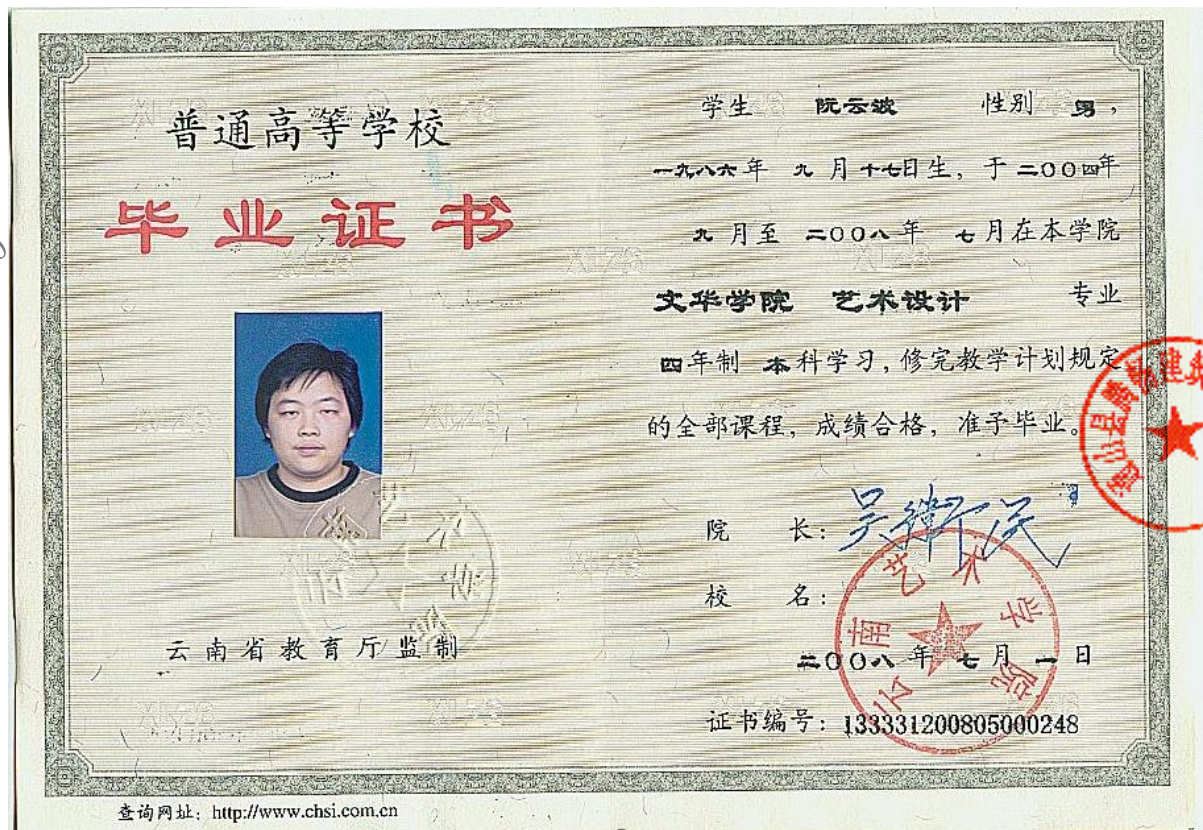 普通高等学校
毕业证书
云南省教育厅监制
学生 阮云波 性别 男，
一九八六年 九月十七日生，于二〇〇四年
九月至 二〇〇八年 七月在本学院
文华学院 艺术设计 专业
四年制 本科学习，修完教学计划规定
的全部课程，成绩合格，准予毕业。
院 长：
校 名：
云南艺术学院
二〇〇八年七月一日
证书编号：133331200805000248
通山县腾畅建筑
查询网址：http://www.chsi.com.cn